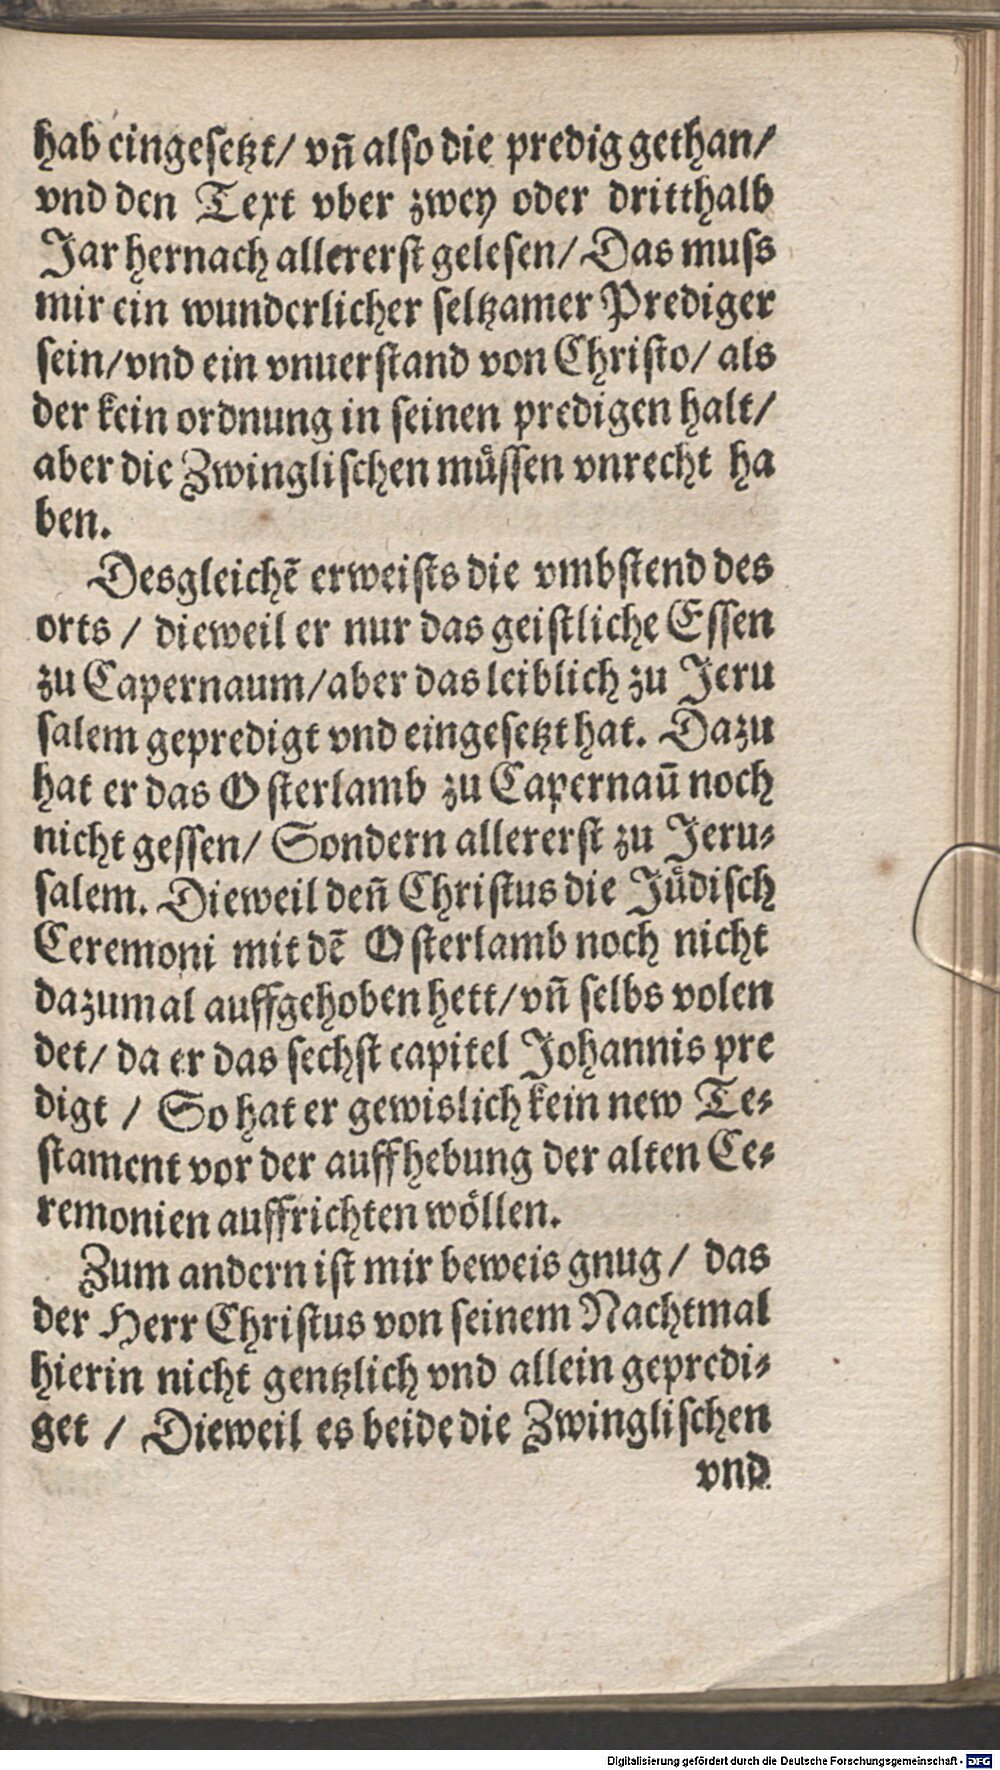 hab eingesetzt/ vn̄ also die predig gethan/
vnd den Text vber zwey oder dritthalb
Jar hernach allererst gelesen/ Das muss
mir ein wunderlicher seltzamer Prediger
sein/ vnd ein vnuerstand von Christo/ als
der kein ordnung in seinen predigen halt/
aber die Zwinglischen müssen vnrecht ha
ben.
Desgleichē erweists die vmbstend des
orts / dieweil er nur das geistliche Essen
zu Capernaum/ aber das leiblich zu Jeru
salem gepredigt vnd eingesetzt hat. Dazu
hat er das Osterlamb zu Capernaū noch
nicht gessen/ Sondern allererst zu Jeru⸗
salem. Dieweil den̄ Christus die Jüdisch
Ceremoni mit dē Osterlamb noch nicht
dazumal auffgehoben hett/ vn̄ selbs volen
det/ da er das sechst capitel Johannis pre
digt / So hat er gewislich kein new Te⸗
stament vor der auffhebung der alten Ce⸗
remonien auffrichten wöllen.
Zum andern ist mir beweis gnug / das
der Herr Christus von seinem Nachtmal
hierin nicht gentzlich vnd allein gepredi⸗
get / Dieweil es beide die Zwinglischen
vnd
Digitalisierung gefördert durch die Deutsche Forschungsgemeinschaft - DFG